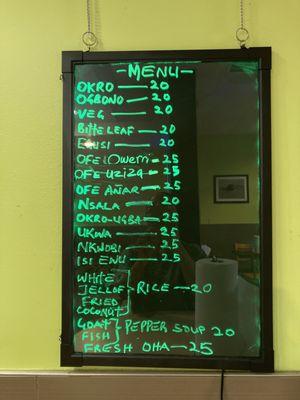 -MENU-
OKRO — 20
OGBONO — 20
VEG — 20
BITTELEAF — 20
EGUSI — 20
OFE OWERRI — 25
OFE UZIZA — 25
OFE AÑAR — 25
NSALA — 20
OKRO-UGBA — 25
UKWA — 25
NKWOBI — 25
ISI EWU — 25
WHITE
JELLOF } RICE — 20
FRIED
COCONUT
GOAT } PEPPER SOUP 20
FISH
FRESH OHA — 25